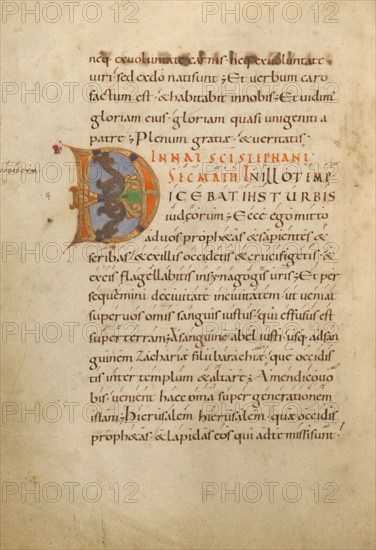 neq; exvoluntate carnis. neq; exvoluntate
uiri. sed exdo natisunt; Et verbum caro
factum est. & habitabit innobis; Et uidim'
gloriam eius. gloriam quasi unigeniti a
patre; Plenum gratiae & ueritatis.
IN NAT SCI STEPHANI
SEC MATH IN ILLOTEMP
DICEBAT IHS TURBIS
iudeorum; Ecce ego mitto
aduos prophetas & sapientes &
scribas. & exillis occidetis & crucifigetis. &
exeis flagellabitis insynagogis uris; Et per
sequemini deciuitate inciuitatem. ut ueniat
superuos omis sanguis iustus. qui effusus est
super terram; Asanguine abel iusti. usq; adsan
guinem zachariae filii barachiae. que occidis
tis inter templum & altare; Amendicouo
bis. uenient haec omia super generationem
istam; Hierusalem hierusalem. quae occidis
prophetas. & lapidas eos qui adte missisunt.